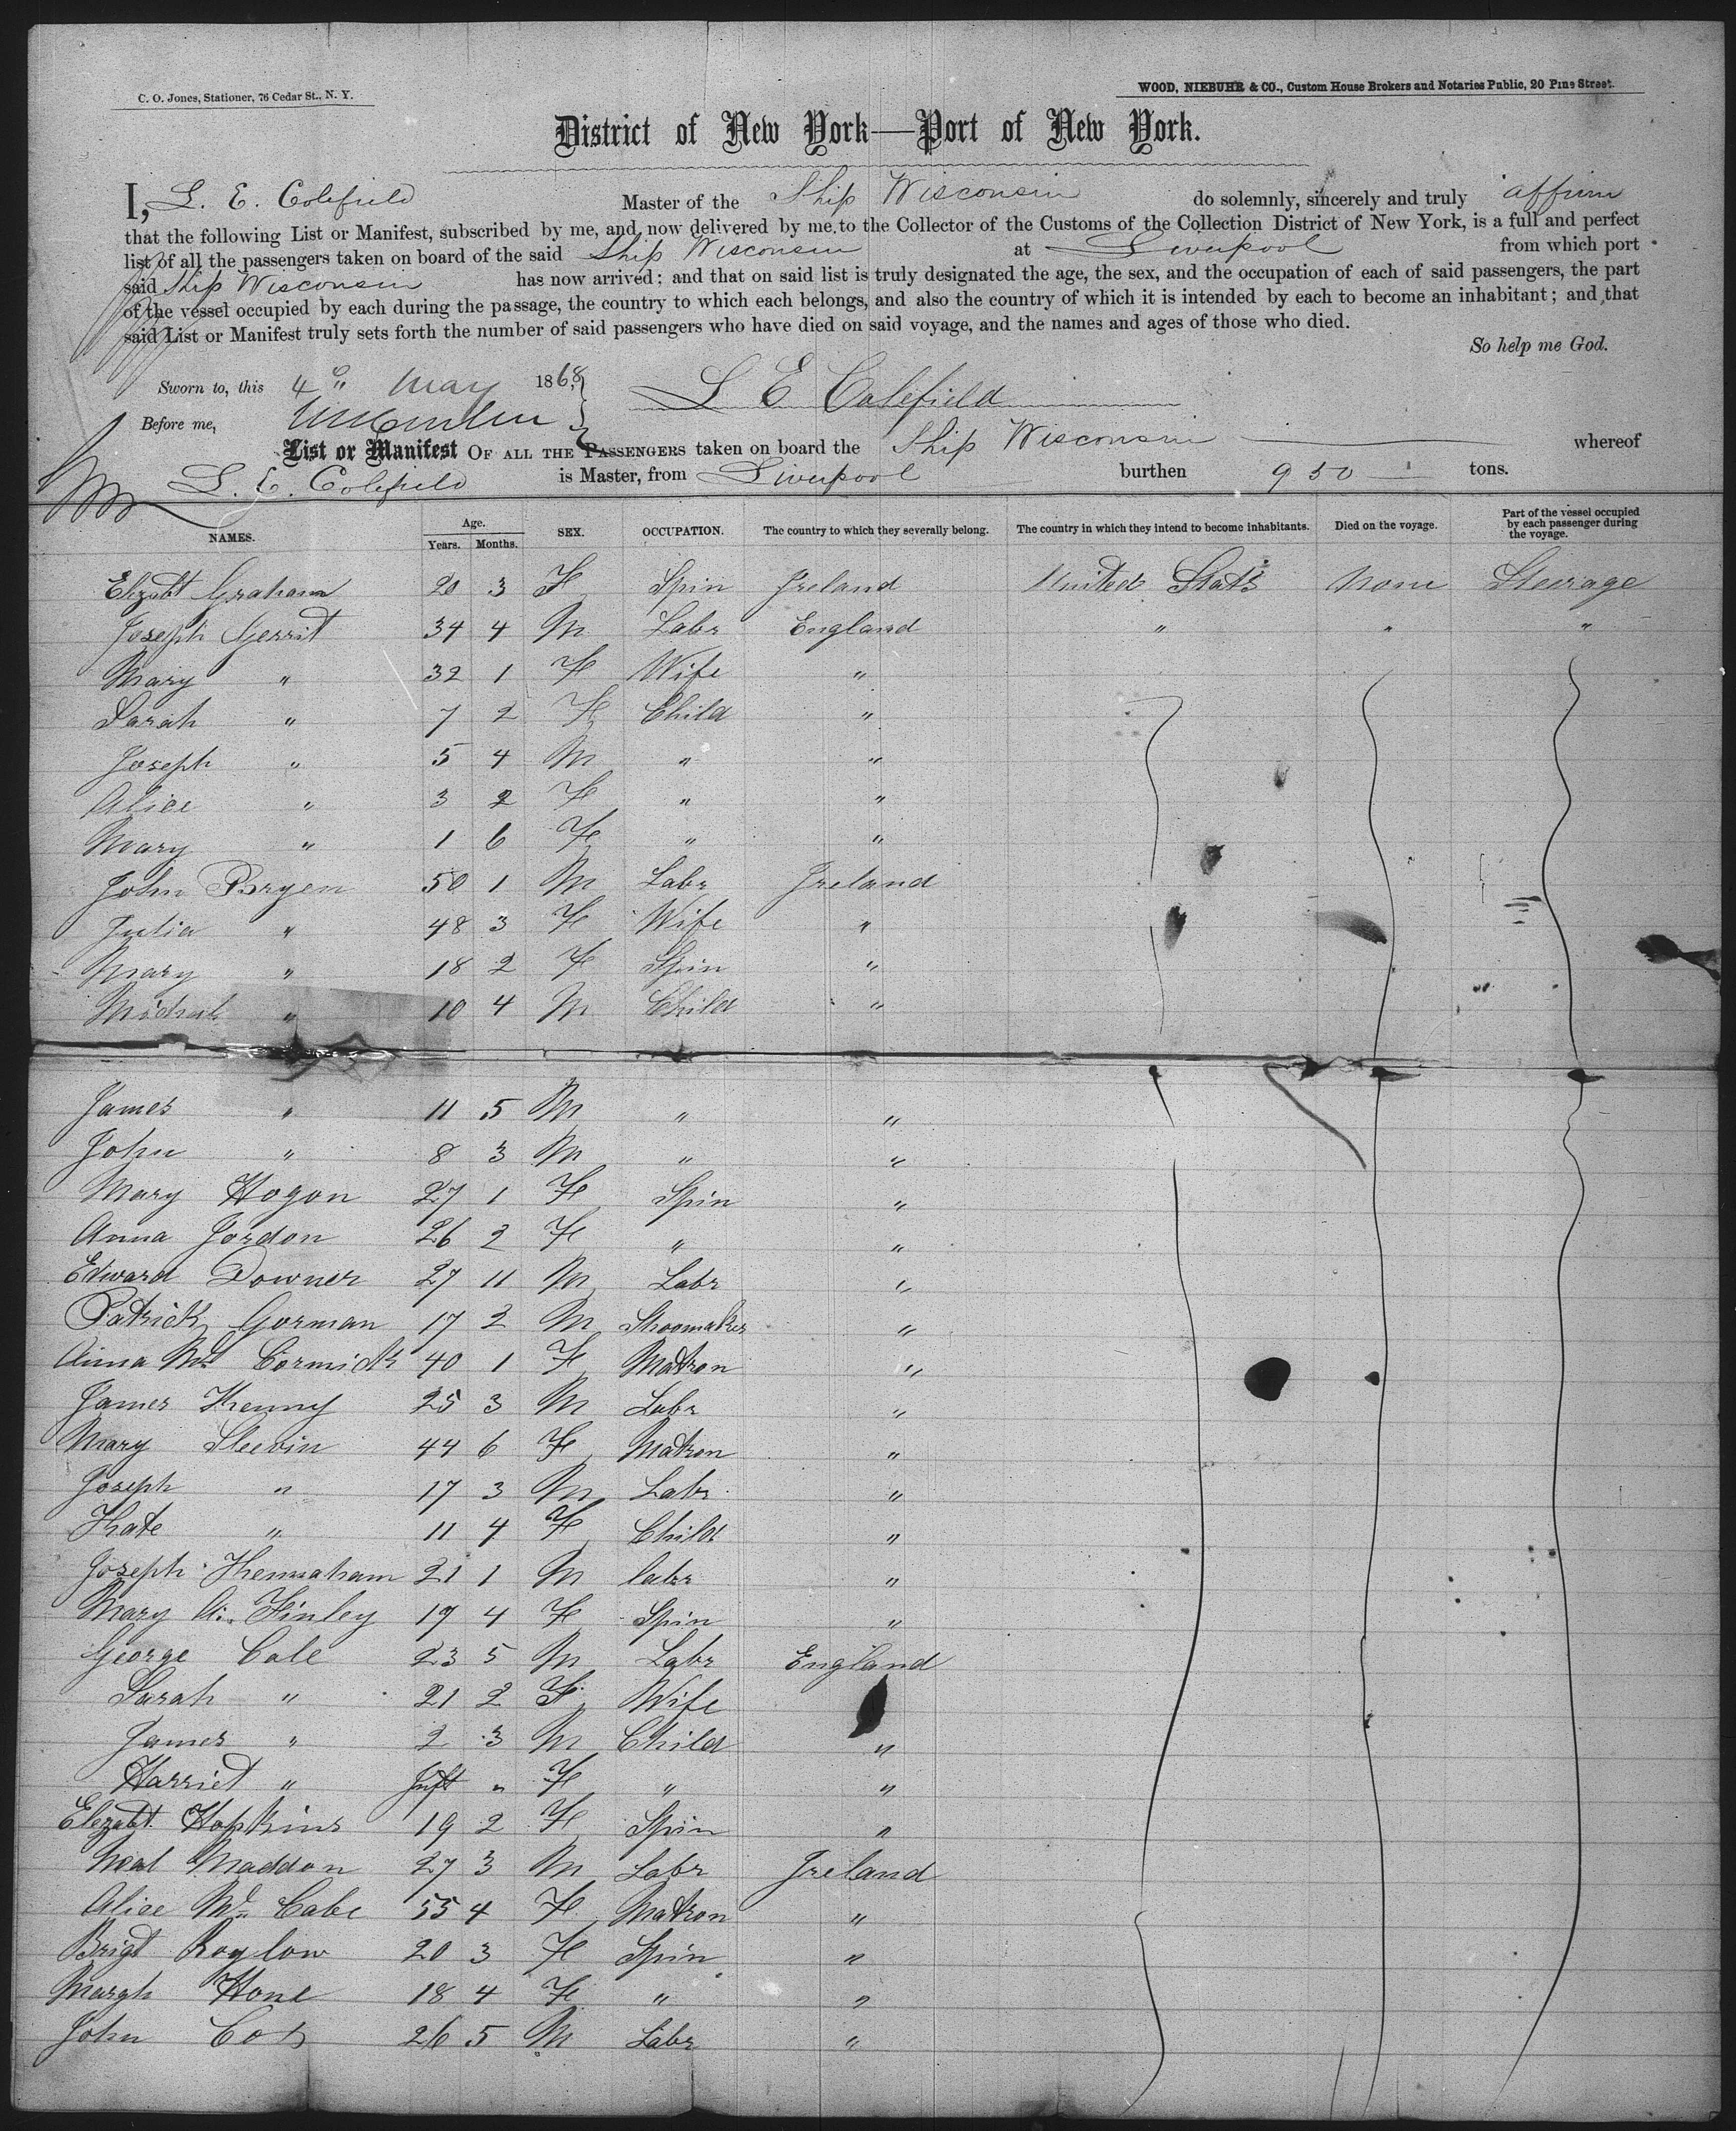 C. O. Jones, Stationer, 76 Cedar St., N. Y.
WOOD, NIEBUHR & CO., Custom House Brokers and Notaries Public, 20 Pine Street.
District of New York—Port of New York.
I, L. E. Colefield Master of the Ship Wisconsin do solemnly, sincerely and truly affirm
that the following List or Manifest, subscribed by me, and now delivered by me to the Collector of the Customs of the Collection District of New York, is a full and perfect
list of all the passengers taken on board of the said Ship Wisconsin at Liverpool from which port
said Ship Wisconsin has now arrived; and that on said list is truly designated the age, the sex, and the occupation of each of said passengers, the part
of the vessel occupied by each during the passage, the country to which each belongs, and also the country of which it is intended by each to become an inhabitant; and that
said List or Manifest truly sets forth the number of said passengers who have died on said voyage, and the names and ages of those who died.
So help me God.
Sworn to, this 4" May 1868, L E Colefield
Before me,
List or Manifest OF ALL THE PASSENGERS taken on board the Ship Wisconsin whereof
L. E. Colefield is Master, from Liverpool burthen 950 tons.
NAMES. Age. Years. Months. SEX. OCCUPATION. The country to which they severally belong. The country in which they intend to become inhabitants. Died on the voyage. Part of the vessel occupied by each passenger during the voyage.
Elizabt Graham 20 3 F Spin Ireland United Stats None Steerage
Joseph Gerrit 34 4 M Labr England " " "
Mary " 32 1 F Wife "
Sarah " 7 2 F Child "
Joseph " 5 4 M " "
Alice " 3 2 F " "
Mary " 1 6 F " "
John Bryen 50 1 M Labr Ireland
Julia " 48 3 F Wife "
Mary " 18 2 F Spin "
" 10 4 M Child "
James " 11 5 M " "
John " 8 3 M " "
Mary Hogon 27 1 F Spin "
Anna Jordon 26 2 F " "
Edward Downer 27 11 M Labr "
Patrick Gorman 17 2 M Shoomaker "
Anna Mc Cormick 40 1 F Matron "
James Kenny 25 3 M Labr "
Mary Slevin 44 6 F Matron "
Joseph " 17 3 M Labr "
Kate " 11 4 F Child "
Joseph 21 1 M labr "
Mary A. Finley 19 4 F Spin "
George Cale 23 5 M Labr England
Sarah " 21 2 F Wife
James " 2 3 M Child "
Harriet " Inft " F " "
Elezabt Hopkins 19 2 F Spin "
Neal Maddon 27 3 M Labr Ireland
Alice Mc Cabe 55 4 F Matron "
Brigt Roylow 20 3 F Spin "
Margh Hone 18 4 F " "
John Cox 26 5 M Labr "